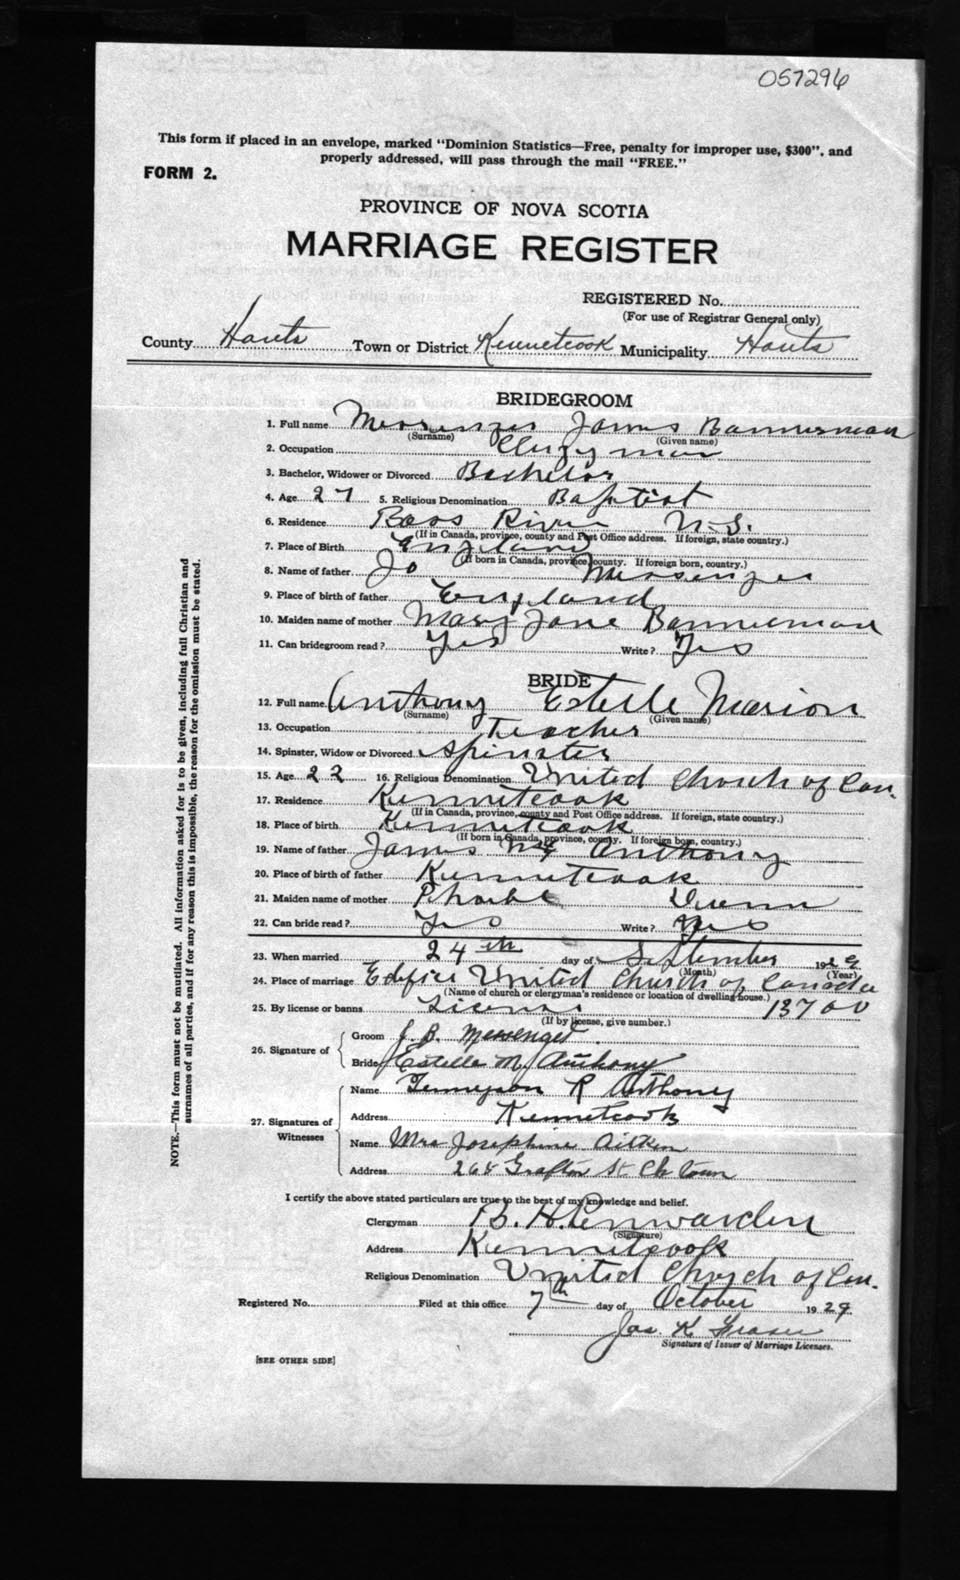 057296
This form if placed in an envelope, marked "Dominion Statistics—Free, penalty for improper use, $300", and
properly addressed, will pass through the mail "FREE."
FORM 2.
PROVINCE OF NOVA SCOTIA
MARRIAGE REGISTER
REGISTERED No.
(For use of Registrar General only)
County Hants Town or District Kennetcook Municipality Hants
BRIDEGROOM
1. Full name Messenger James Bannerman
(Surname) (Given name)
2. Occupation Clergyman
3. Bachelor, Widower or Divorced Bachelor
4. Age 27 5. Religious Denomination Baptist
6. Residence Bass River N.S.
(If in Canada, province, county and Post Office address. If foreign, state country.)
7. Place of Birth England
(If born in Canada, province, county. If foreign born, country.)
8. Name of father Jo Messenger
9. Place of birth of father England
10. Maiden name of mother Mary Jane Bannerman
11. Can bridegroom read? Yes Write? Yes
BRIDE
12. Full name Anthony Estelle Marion
(Surname) (Given name)
13. Occupation Teacher
14. Spinster, Widow or Divorced Spinster
15. Age 22 16. Religious Denomination United Church of Can.
17. Residence Kennetcook
(If in Canada, province, county and Post Office address. If foreign, state country.)
18. Place of birth Kennetcook
(If born in Canada, province, county. If foreign born, country.)
19. Name of father James Anthony
20. Place of birth of father Kennetcook
21. Maiden name of mother Phoebe
22. Can bride read? Yes Write? Yes
23. When married 24th day of September 1929
(Month) (Year)
24. Place of marriage Edifice United Church of Canada
(Name of church or clergyman's residence or location of dwelling house.)
25. By license or banns License 13700
(If by license, give number.)
26. Signature of Groom J. B. Messenger.
Bride Estelle M. Anthony
27. Signatures of Witnesses Name Tennyson R Anthony
Address Kennetcook
Name Mrs Josephine Aitken
Address 264 Grafton St Ch town
I certify the above stated particulars are true to the best of my knowledge and belief.
Clergyman B. H. Penwarden
(Signature)
Address Kennetcook
Religious Denomination United Church of Can.
Registered No. Filed at this office 7th day of October 1929
Jas K Fraser
Signature of Issuer of Marriage Licenses.
[SEE OTHER SIDE]
NOTE.—This form must not be mutilated. All information asked for is to be given, including full Christian and
surnames of all parties, and if for any reason this is impossible, the reason for the omission must be stated.